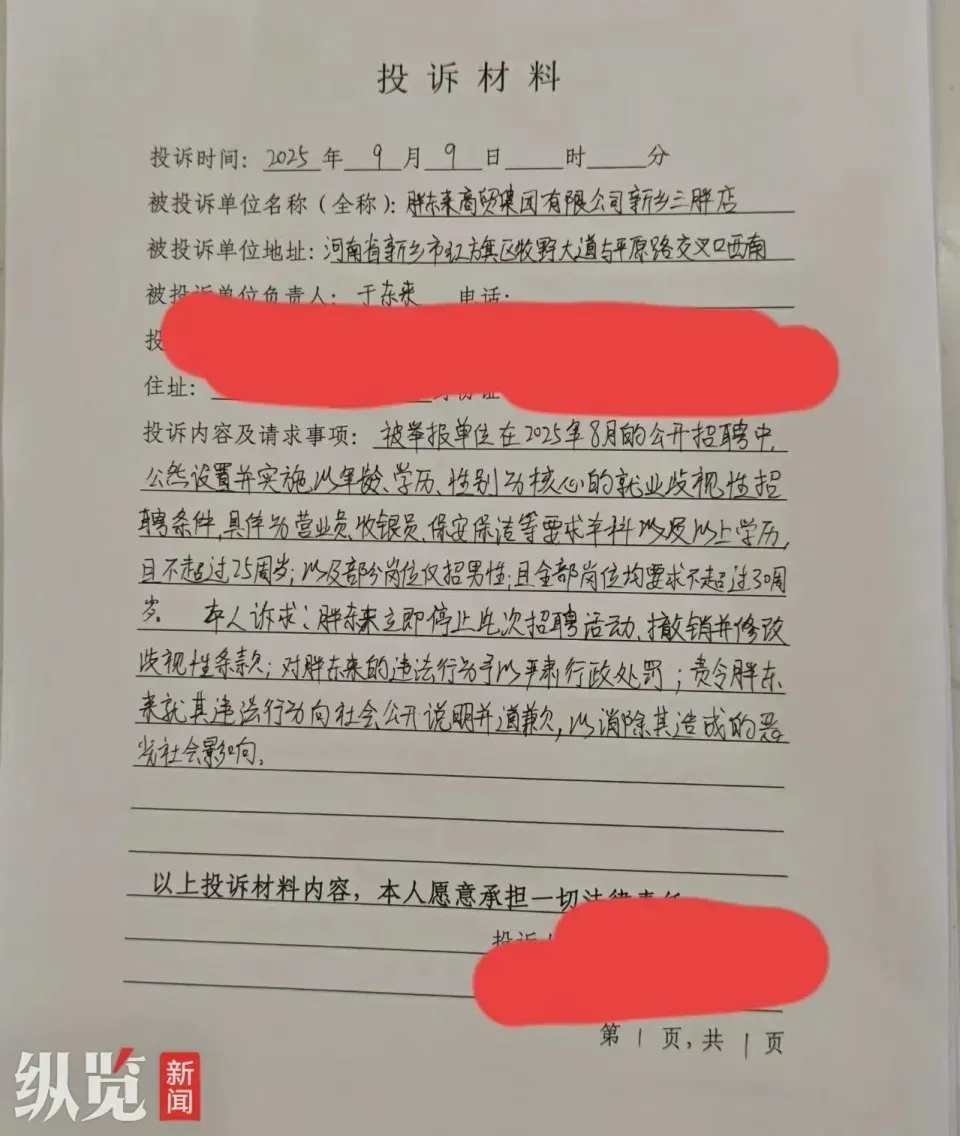 投诉材料
投诉时间：2025年9月9日 时 分
被投诉单位名称（全称）：胖东来商贸集团有限公司新乡三胖店
被投诉单位地址：河南省新乡市红旗区牧野大道与平原路交叉口西南
被投诉单位负责人：于东来 电话：
投
住址：
投诉内容及请求事项：被举报单位在2025年8月的公开招聘中，
公然设置并实施以年龄、学历、性别为核心的就业歧视性招
聘条件，具体为营业员、收银员、保安保洁等要求本科以及以上学历，
且不超过25周岁；以及部分岗位仅招男性；且全部岗位均要求不超过30周
岁。 本人诉求：胖东来立即停止此次招聘活动，撤销并修改
歧视性条款；对胖东来的违法行为予以严肃行政处罚；责令胖东
来就其违法行为向社会公开说明并道歉，以消除其造成的恶
劣社会影响。
以上投诉材料内容，本人愿意承担一切法律责任
投诉人
第1页，共1页
纵览
新闻